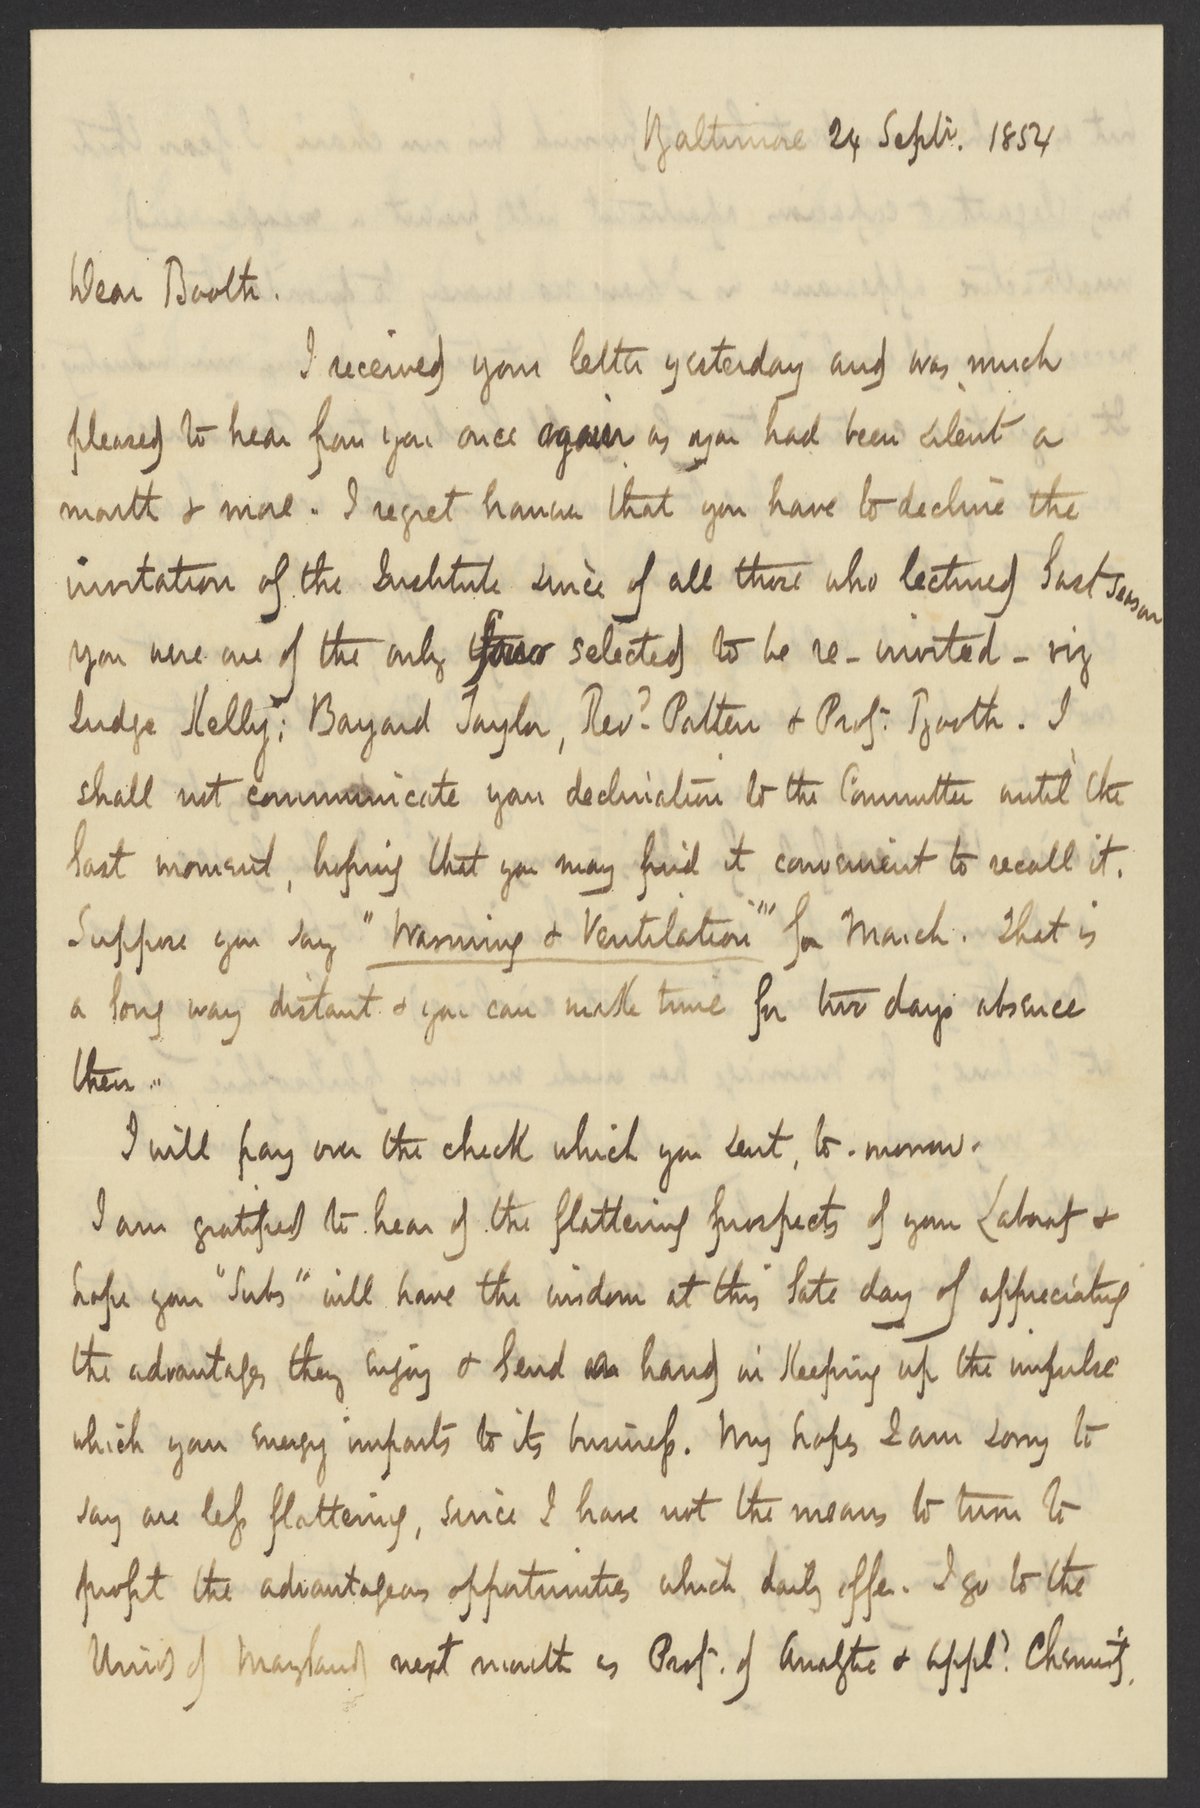 Baltimore 24 Septr. 1854
Dear Booth.
I received your letter yesterday and was much
pleased to hear from you once again as you had been silent a
month & more. I regret however that you have to decline the
invitation of the Institute since of all those who lectured last season
you were one of the only four selected to be re-invited - viz
Judge Kelly; Bayard Taylor, Revd. Patten & Prof. Booth. I
shall not communicate your declination to the Committee until the
last moment, hoping that you may find it convenient to recall it.
Suppose you say "Warming & Ventilation" for March. That is
a long way distant & you can make time for two days absence
then.
I will pay over the check which you sent, to-morrow.
I am gratified to hear of the flattering prospects of your Laborat &
hope your "Subs" will have the wisdom at this late day of appreciating
the advantages they enjoy & lend a hand in keeping up the impulse
which your energy imparts to its business. My hopes I am sorry to
say are less flattering, since I have not the means to turn to
profit the advantageous opportunities which daily offer. I go to the
Univ of Maryland next month as Prof. of Analytic & appld. Chemist.